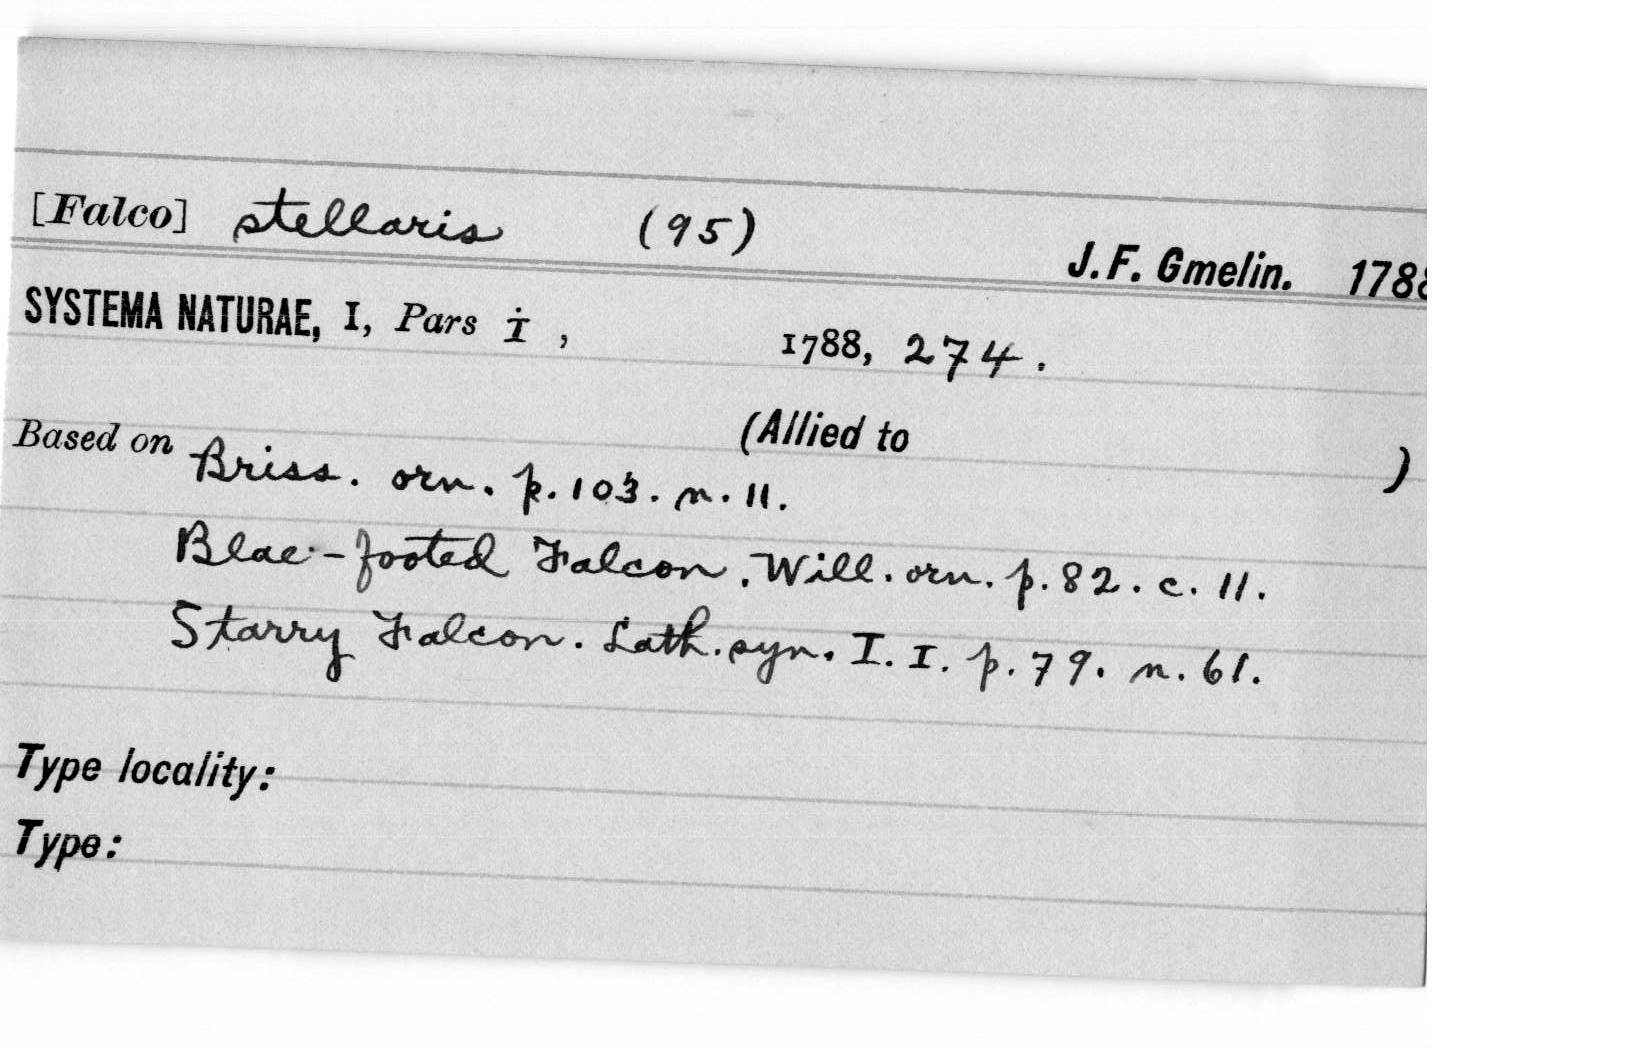 [Falco] stellaris (95) J.F. Gmelin. 1788
SYSTEMA NATURAE, I, Pars i, 1788, 274.
(Allied to )
Based on Briss. orn. p. 103. n. 11.
Blac-footed Falcon. Will. orn. p. 82. c. 11.
Starry Falcon. Lath. syn. I. I. p. 79. n. 61.
Type locality:
Type: